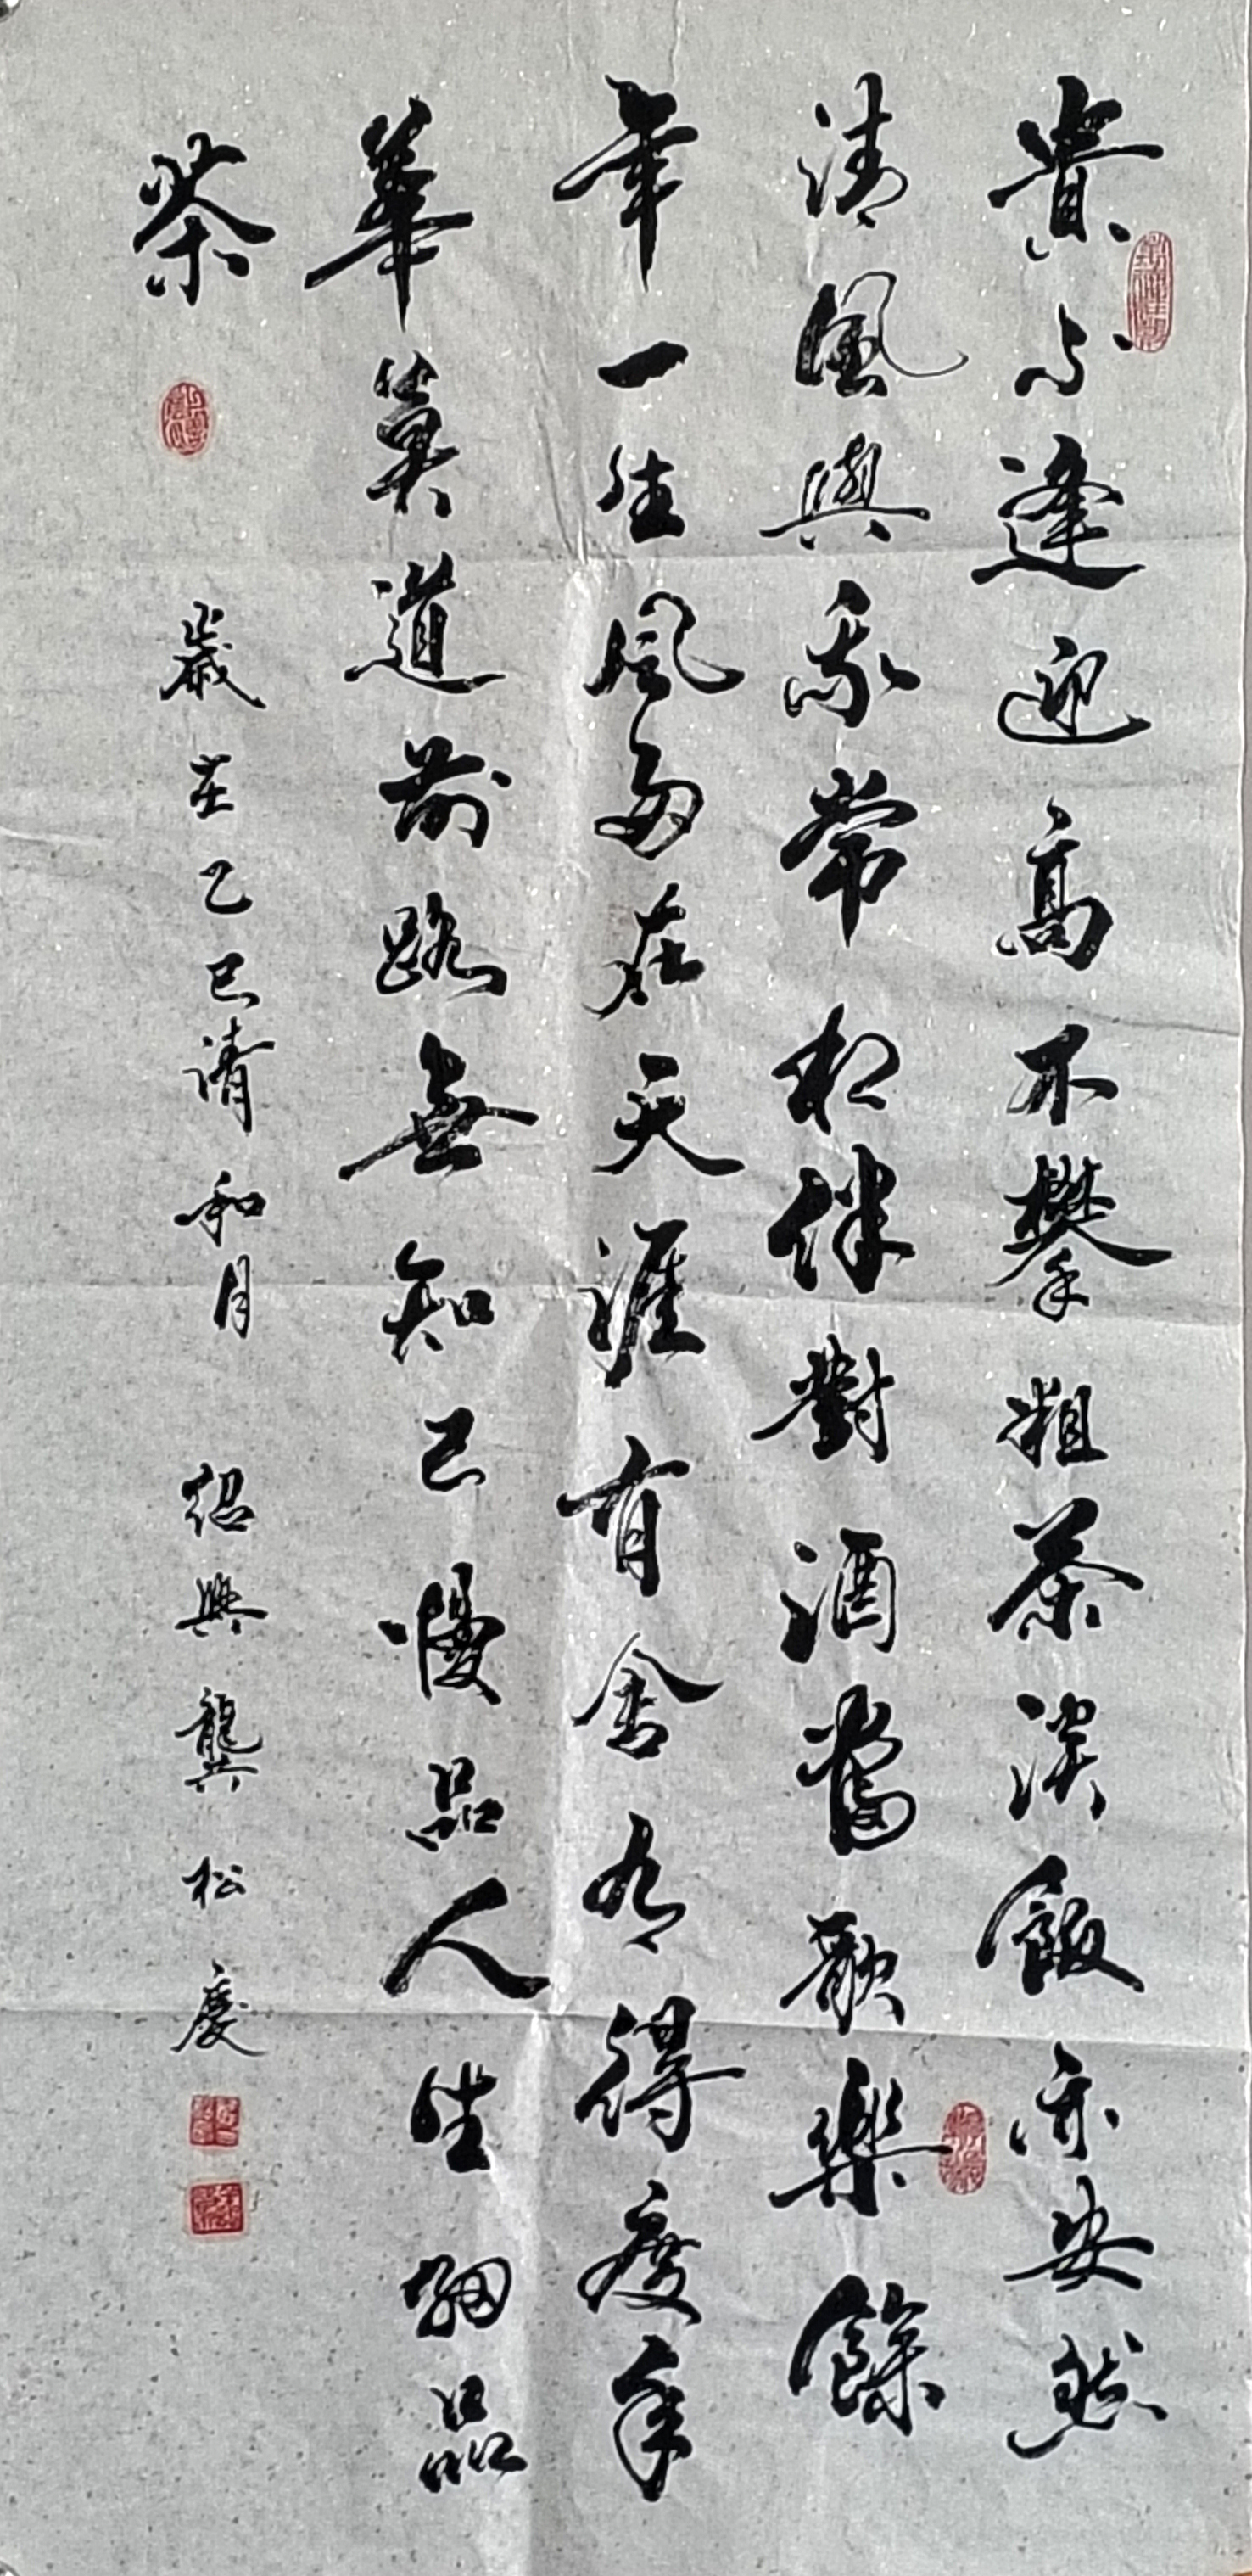 貴不逢迎高不攀粗茶淡飯亦安然
清風與我常相伴對酒當歌樂餘
年一生風多在天涯有舍有得度年
華莫道前路無知己慢品人生細品
茶
歲在乙巳清和月 紹興龔松慶